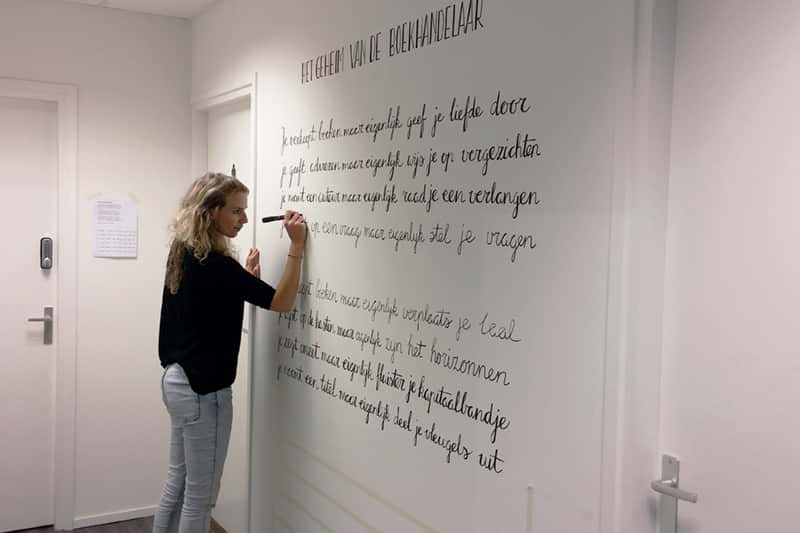 HET GEHEIM VAN DE BOEKHANDELAAR
Je verkoopt boeken maar eigenlijk geef je liefde door
je geeft adviezen maar eigenlijk wijs je op vergezichten
je noemt een auteur maar eigenlijk raad je een verlangen
op een vraag maar eigenlijk stel je vragen
boeken maar eigenlijk verplaats je taal
op de kasten maar eigenlijk zijn het horizonnen
je zegt omzet maar eigenlijk fluister je kapitaalbandje
je noemt een titel maar eigenlijk deel je vleugels uit